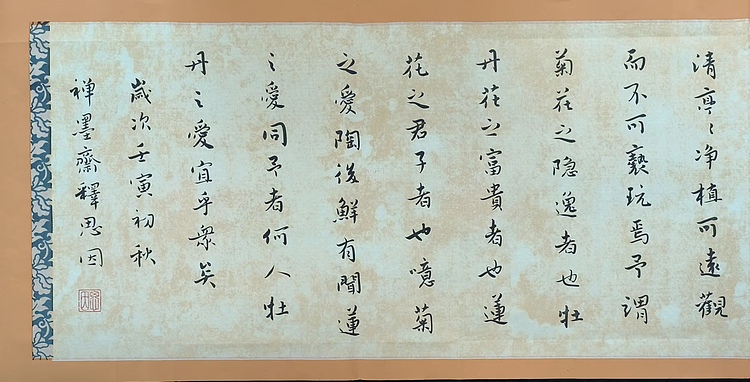 清亭〻净植可遠觀
而不可褻玩焉予謂
菊花之隐逸者也牡
丹花之富貴者也蓮
花之君子者也噫菊
之愛陶後鮮有聞蓮
之愛同予者何人牡
丹之愛宜乎衆矣
歲次壬寅初秋
禅墨齋釋思因